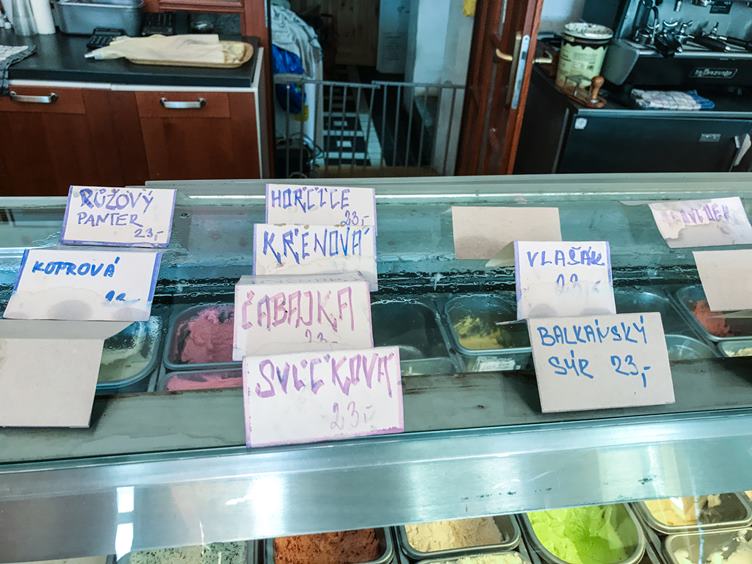 RŮŽOVÝ
PANTER
23,-
HOŘČICE
23,-
KŘENOVÁ
KOPROVÁ
ČABAJKA
23,-
SVÍČKOVÁ
23,-
VLAŠÁK
23,-
BALKÁNSKÝ
SÝR 23,-